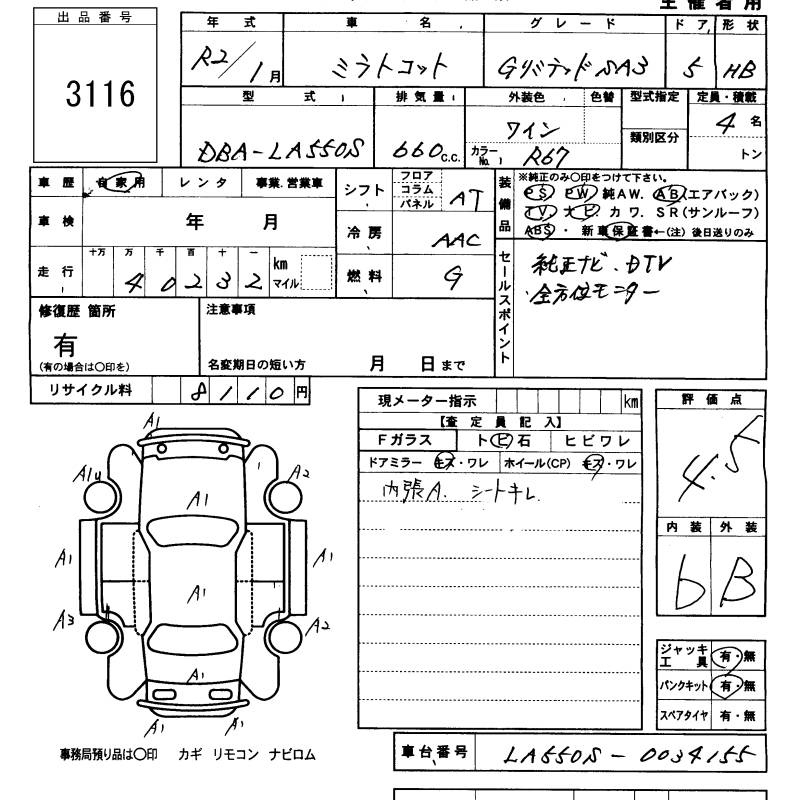 主催者用
出品番号
3116
年式 車名 グレード ドア 形状
R2/1月 ミラトコット GリミテッドSA3 5 HB
型式 排気量 外装色 色替 型式指定 定員・積載
DBA-LA550S 660c.c. ワイン 類別区分 4名
カラーNo. R67 トン
車歴 自家用 レンタ 事業.営業車
車検 年 月
走行 十万 万 千 百 十 一
40232 km マイル
シフト フロア コラム パネル AT
冷房 AAC
燃料 G
装備品
※純正のみ〇印をつけて下さい。
PS PW 純AW. AB(エアバック)
TV. ナビ. カワ. SR(サンルーフ)
ABS・ 新車保証書←(注) 後日送りのみ
セールスポイント
純正ナビ.DTV
全方位モニター
修復歴 箇所
有
(有の場合は〇印を)
注意事項
名変期日の短い方 月 日まで
リサイクル料 8110円
現メーター指示 km
【査定員記入】
Fガラス トビ石 ヒビワレ
ドアミラー キズ・ワレ ホイール(CP) キズ・ワレ
内張A. シートキレ
評価点
4.5
内装 外装
b B
ジャッキ工具 有・無
パンクキット 有・無
スペアタイヤ 有・無
A1
A1u A2
A1
A1 A1 A1
A3 A2
A1
A1 A1
事務局預り品は〇印 カギ リモコン ナビロム
車台番号 LA550S-0034155